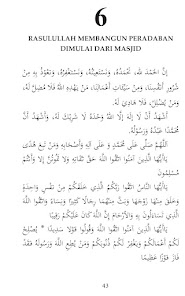 6
RASULULLAH MEMBANGUN PERADABAN
DIMULAI DARI MASJID
إِنَّ الْحَمْدَ لِلَّهِ، نَحْمَدُهُ، وَنَسْتَعِيْنُهُ، وَنَسْتَغْفِرُهُ، وَنَعُوْذُ بِهِ مِنْ
شُرُوْرِ أَنْفُسِنَا، وَمِنْ سَيِّئَاتِ أَعْمَالِنَا، مَنْ يَهْدِهِ اللهُ فَلَا مُضِلَّ لَهُ،
وَمَنْ يُضْلِلْ، فَلَا هَادِيَ لَهُ.
وَأَشْهَدُ أَنْ لَا إِلَهَ إِلَّا اللهُ وَحْدَهُ لَا شَرِيْكَ لَهُ، وَأَشْهَدُ أَنَّ
مُحَمَّدًا عَبْدُهُ وَرَسُوْلُهُ.
اَللَّهُمَّ صَلِّى عَلَى مُحَمَّدٍ وَ عَلَى آلِهِ وَأَصْحَابِهِ وَمَنْ تَبِعَ هُدَى
يَاأَيُّهَا الَّذِيْنَ آمَنُوا اتَّقُوا اللهَ حَقَّ تُقَاتِهِ وَلَا تَمُوْتُنَّ إِلَّا وَأَنْتُمْ
يَاأَيُّهَا النَّاسُ اتَّقُوا رَبَّكُمُ الَّذِي خَلَقَكُمْ مِنْ نَفْسٍ وَاحِدَةٍ
وَخَلَقَ مِنْهَا زَوْجَهَا وَبَثَّ مِنْهُمَا رِجَالًا كَثِيْرًا وَنِسَاءً وَاتَّقُوا اللهَ
الَّذِي تَسَاءَلُوْنَ بِهِ وَالْأَرْحَامَ إِنَّ اللهَ كَانَ عَلَيْكُمْ رَقِيْبًا
يَاأَيُّهَا الَّذِيْنَ آمَنُوا اتَّقُوا اللهَ وَقُوْلُوا قَوْلًا سَدِيْدًا * يُصْلِحْ
لَكُمْ أَعْمَالَكُمْ وَيَغْفِرْ لَكُمْ ذُنُوْبَكُمْ وَمَنْ يُطِعِ اللهَ وَرَسُوْلَهُ فَقَدْ
فَازَ فَوْزًا عَظِيْمًا
43